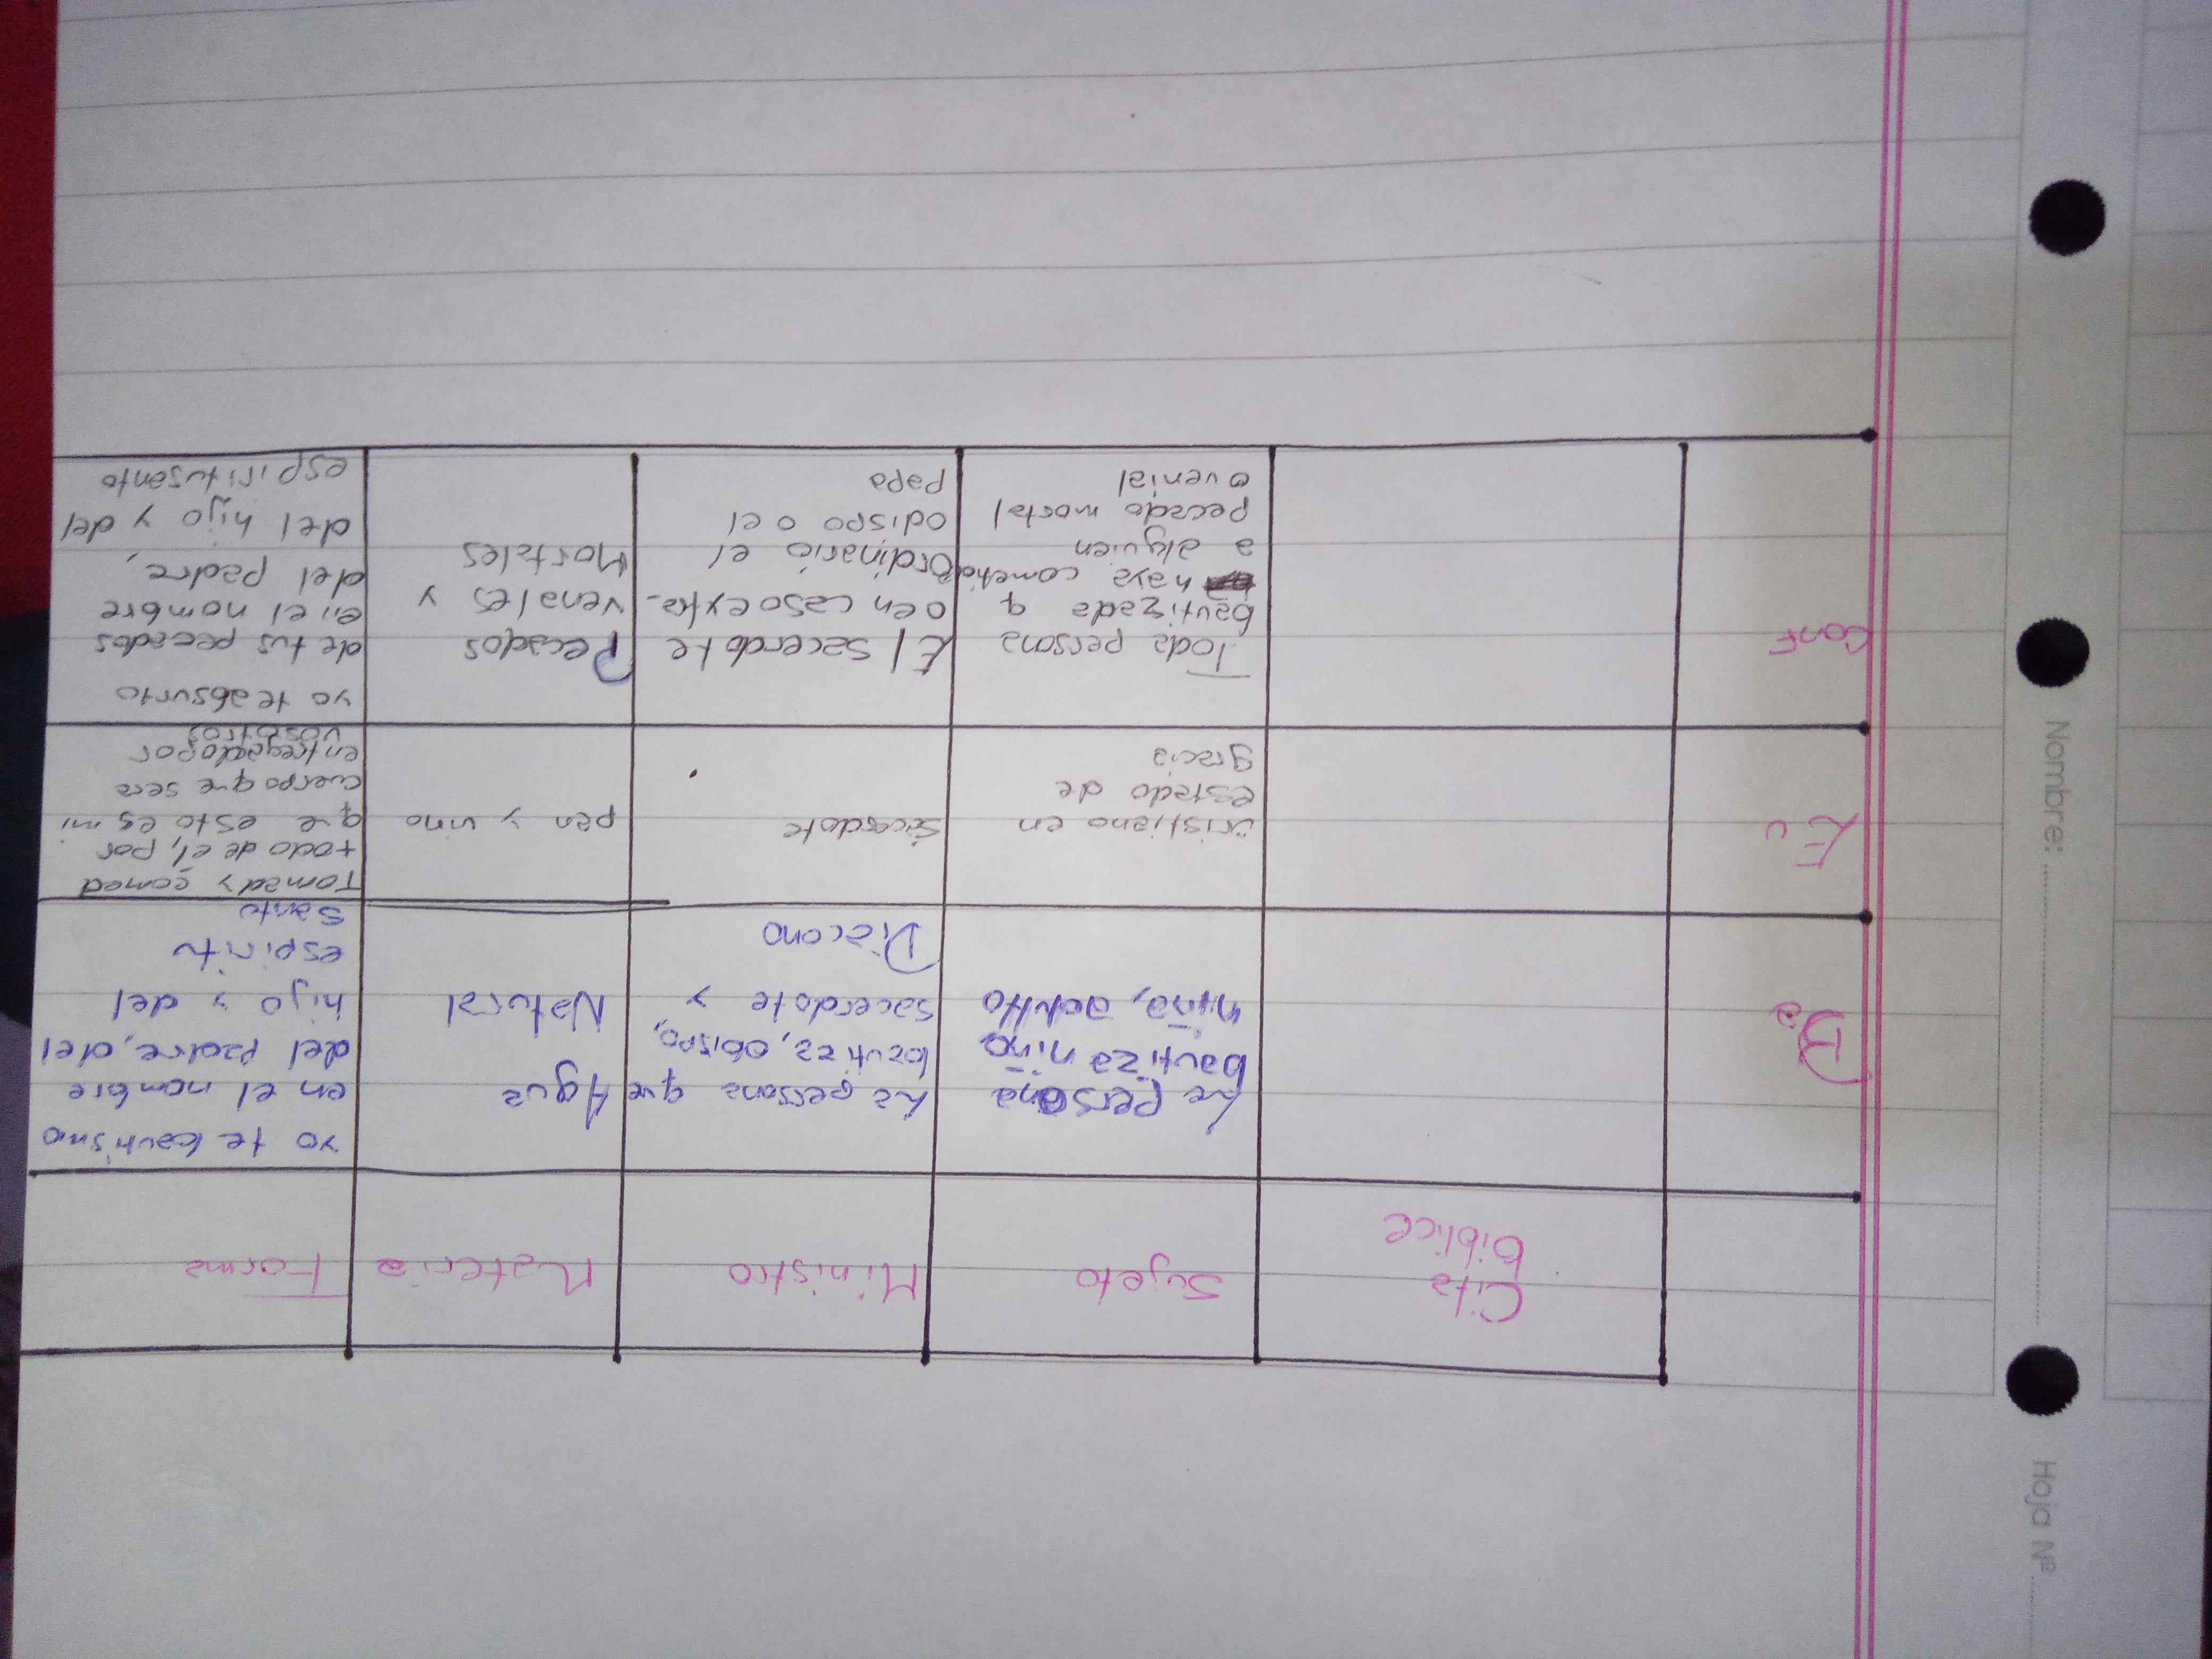 Cita
Biblice
Sujeto
Ministro
Materia
Forma
Ba
La persona
bautiza niño
niña, adulto
La persona que
bautiza, obispo,
sacerdote y
Diacono
Agua
Natural
yo te bautismo
en el nombre
del padre, del
hijo y del
espiritu
santo
Eu
cristiano en
estado de
gracia
Sacerdote
pan y vino
Tomad y comed
todo de el, por
que esto es mi
cuerpo que sera
entregado por
vosotros
Conf
Toda persona
bautizada q
haya cometido
a alguien
pecado mortal
o venial
El sacerdote
o en caso extra-
Ordinario el
odispo o el
papa
Pecados
venales y
Mortales
yo te absurto
de tus pecados
en el nombre
del padre,
del hijo y del
espiritusanto
Nombre:
Hoja Nº